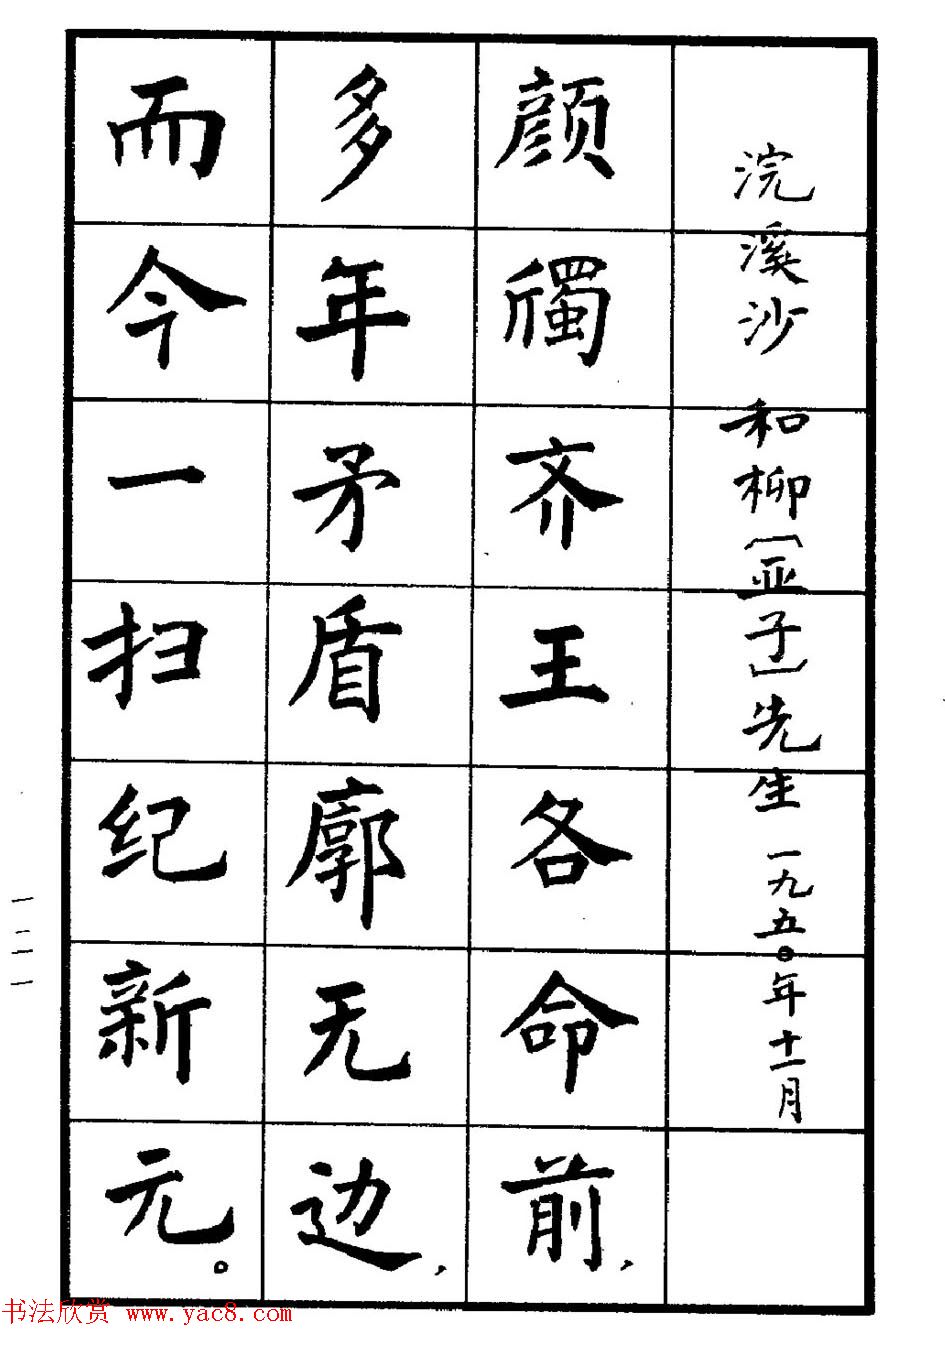 浣溪沙 和柳〔亚子〕先生 一九五〇年十一月
颜斶齐王各命前，
多年矛盾廓无边，
而今一扫纪新元。
一二一
书法欣赏 www.yac8.com